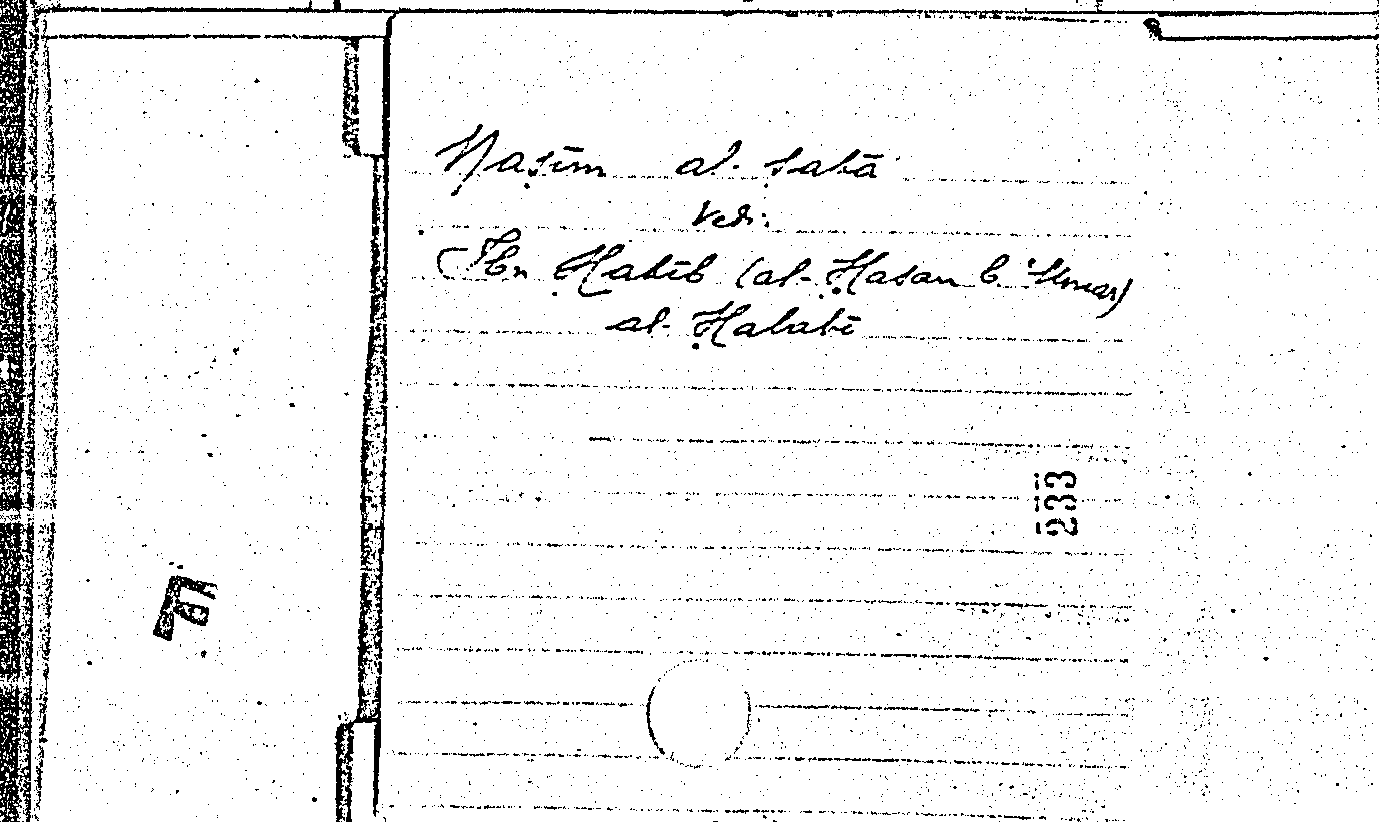 Naṣīm al-ṣabā
Vedi:
Ibn Ḥabīb (al-Ḥasan b. ʿUmar)
al-Ḥalabī
233
F